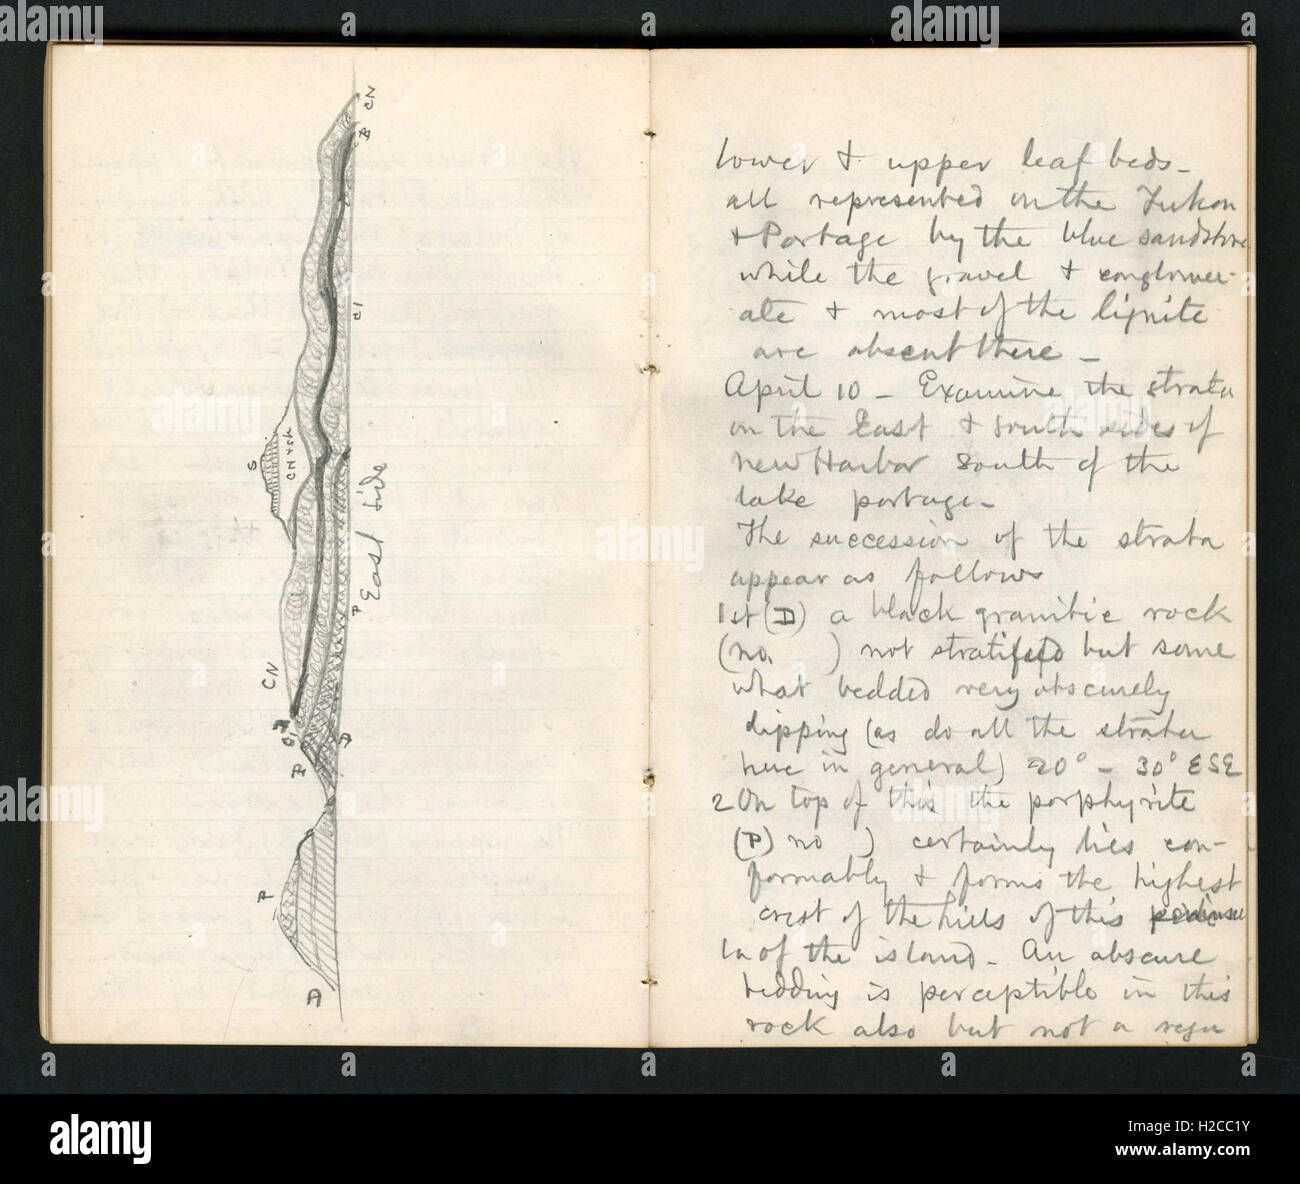 CN
B
Cl
S
CN + sh
East side
P
CN
A
P
D
P
D
lower & upper leaf beds -
all represented on the Yukon
& Portage by the blue sandstone
while the gravel & conglomer-
ate & most of the lignite
are absent there -
April 10 - Examine the strata
on the East & South sides of
new Harbor South of the
lake portage -
The succession of the strata
appear as follows
1st (D) a black granitic rock
(no. ) not stratified but some
what bedded very obscurely
dipping (as do all the strata
here in general) 20° - 30° ESE
2 On top of this the porphyrite
(P) no ) certainly lies con-
formably & forms the highest
crest of the hills of this
of the island - An obscure
bedding is perceptible in this
rock also but not a regu
alamy
alamy
H2CC1Y
www.alamy.com